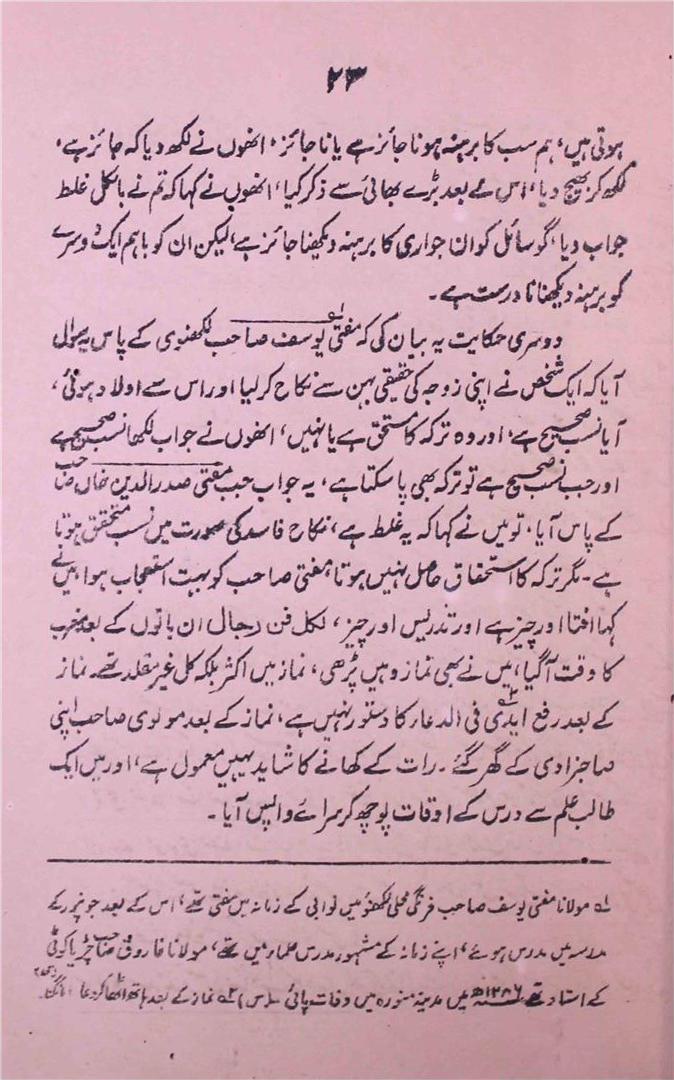 ۲۳
ہوتی ہیں، ہم سب کا برہنہ ہونا جائز ہے یا ناجائز، انھوں نے لکھ دیا کہ جائز ہے،
لکھ کر بھیج دیا، اس کے بعد بڑے بھائی سے ذکر کیا، انھوں نے کہا کہ تم نے بالکل غلط
جواب دیا، گو سائل کو ان جواری کا برہنہ دیکھنا جائز ہے، لیکن ان کو باہم ایک دوسرے
کو برہنہ دیکھنا نادرست ہے۔
دوسری حکایت یہ بیان کی کہ مفتی یوسف صاحب لکھنوی کے پاس یہ سوال
آیا کہ ایک شخص نے اپنی زوجہ کی حقیقی بہن سے نکاح کر لیا اور اس سے اولاد ہوئی،
آیا نسب صحیح ہے، اور وہ ترکہ کا مستحق ہے یا نہیں، انھوں نے جواب لکھا نسب صحیح ہے
اور جب نسب صحیح ہے تو ترکہ بھی پا سکتا ہے، یہ جواب جب مفتی صدر الدین خاں صاحب
کے پاس آیا، تو میں نے کہا کہ یہ غلط ہے، نکاح فاسد کی صورت میں نسب متحقق ہوتا
ہے۔ مگر ترکہ کا استحقاق حاصل نہیں ہوتا، مفتی صاحب کو بہت استعجاب ہوا، میں نے
کہا افتا اور چیز ہے اور تدریس اور چیز، لکل فن رجال ان باتوں کے بعد مغرب
کا وقت آگیا، میں نے بھی نماز وہیں پڑھی، نماز میں اکثر بلکہ کل غیر مقلد تھے۔ نماز
کے بعد رفع ایدی فی الدعاء کا دستور نہیں ہے، نماز کے بعد مولوی صاحب اپنی
صاجزادی کے گھر گئے۔ رات کے کھانے کا شاید یہیں معمول ہے، اور میں ایک
طالب علم سے درس کے اوقات پوچھ کر سرائے واپس آیا۔
۱؎ مولانا مفتی یوسف صاحب فرنگی محلی لکھنؤ میں نوابی کے زمانہ میں مفتی تھے، اس کے بعد جونپور کے
مدرسہ میں مدرس ہوئے، اپنے زمانہ کے مشہور مدرس علماء میں تھے، مولانا فاروق صاحب چریاکوٹی
کے استاد تھے ۱۲۸۶ھ میں مدینہ منورہ میں وفات پائی (س) ۲؎ نماز کے بعد ہاتھ اٹھا کر دعا مانگنا۔